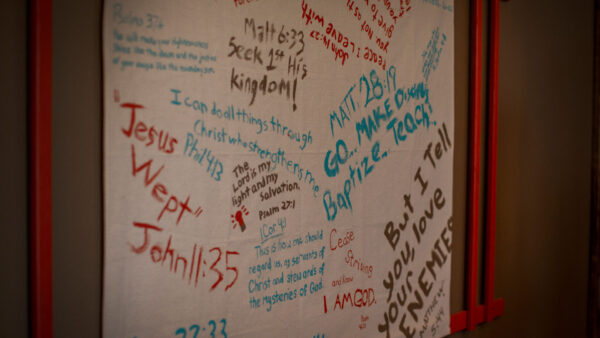 Psalms 37:6
He will make your righteousness
Shine like the dawn and the justice
of your cause like the noonday sun.
Matt 6:33
Seek 1st His
kingdom!
John 14:27
Peace I leave with
you not as the
give to you
I can do all things through
Christ who strengthens me
Phil 4:13
"Jesus
Wept"
John 11:35
The
Lord is my
light and my
Salvation.
Psalm 27:1
MATT. 28:19
GO... MAKE Disciples
Baptize... Teach!
1 Cor 4:1
This is how one should
regard us, as servants of
Christ and stewards of
the mysteries of God.
Cease
Striving
and know
I AM GOD.
But I Tell
you, love
your
ENEMIES
MATTHEW
5:44
22:33